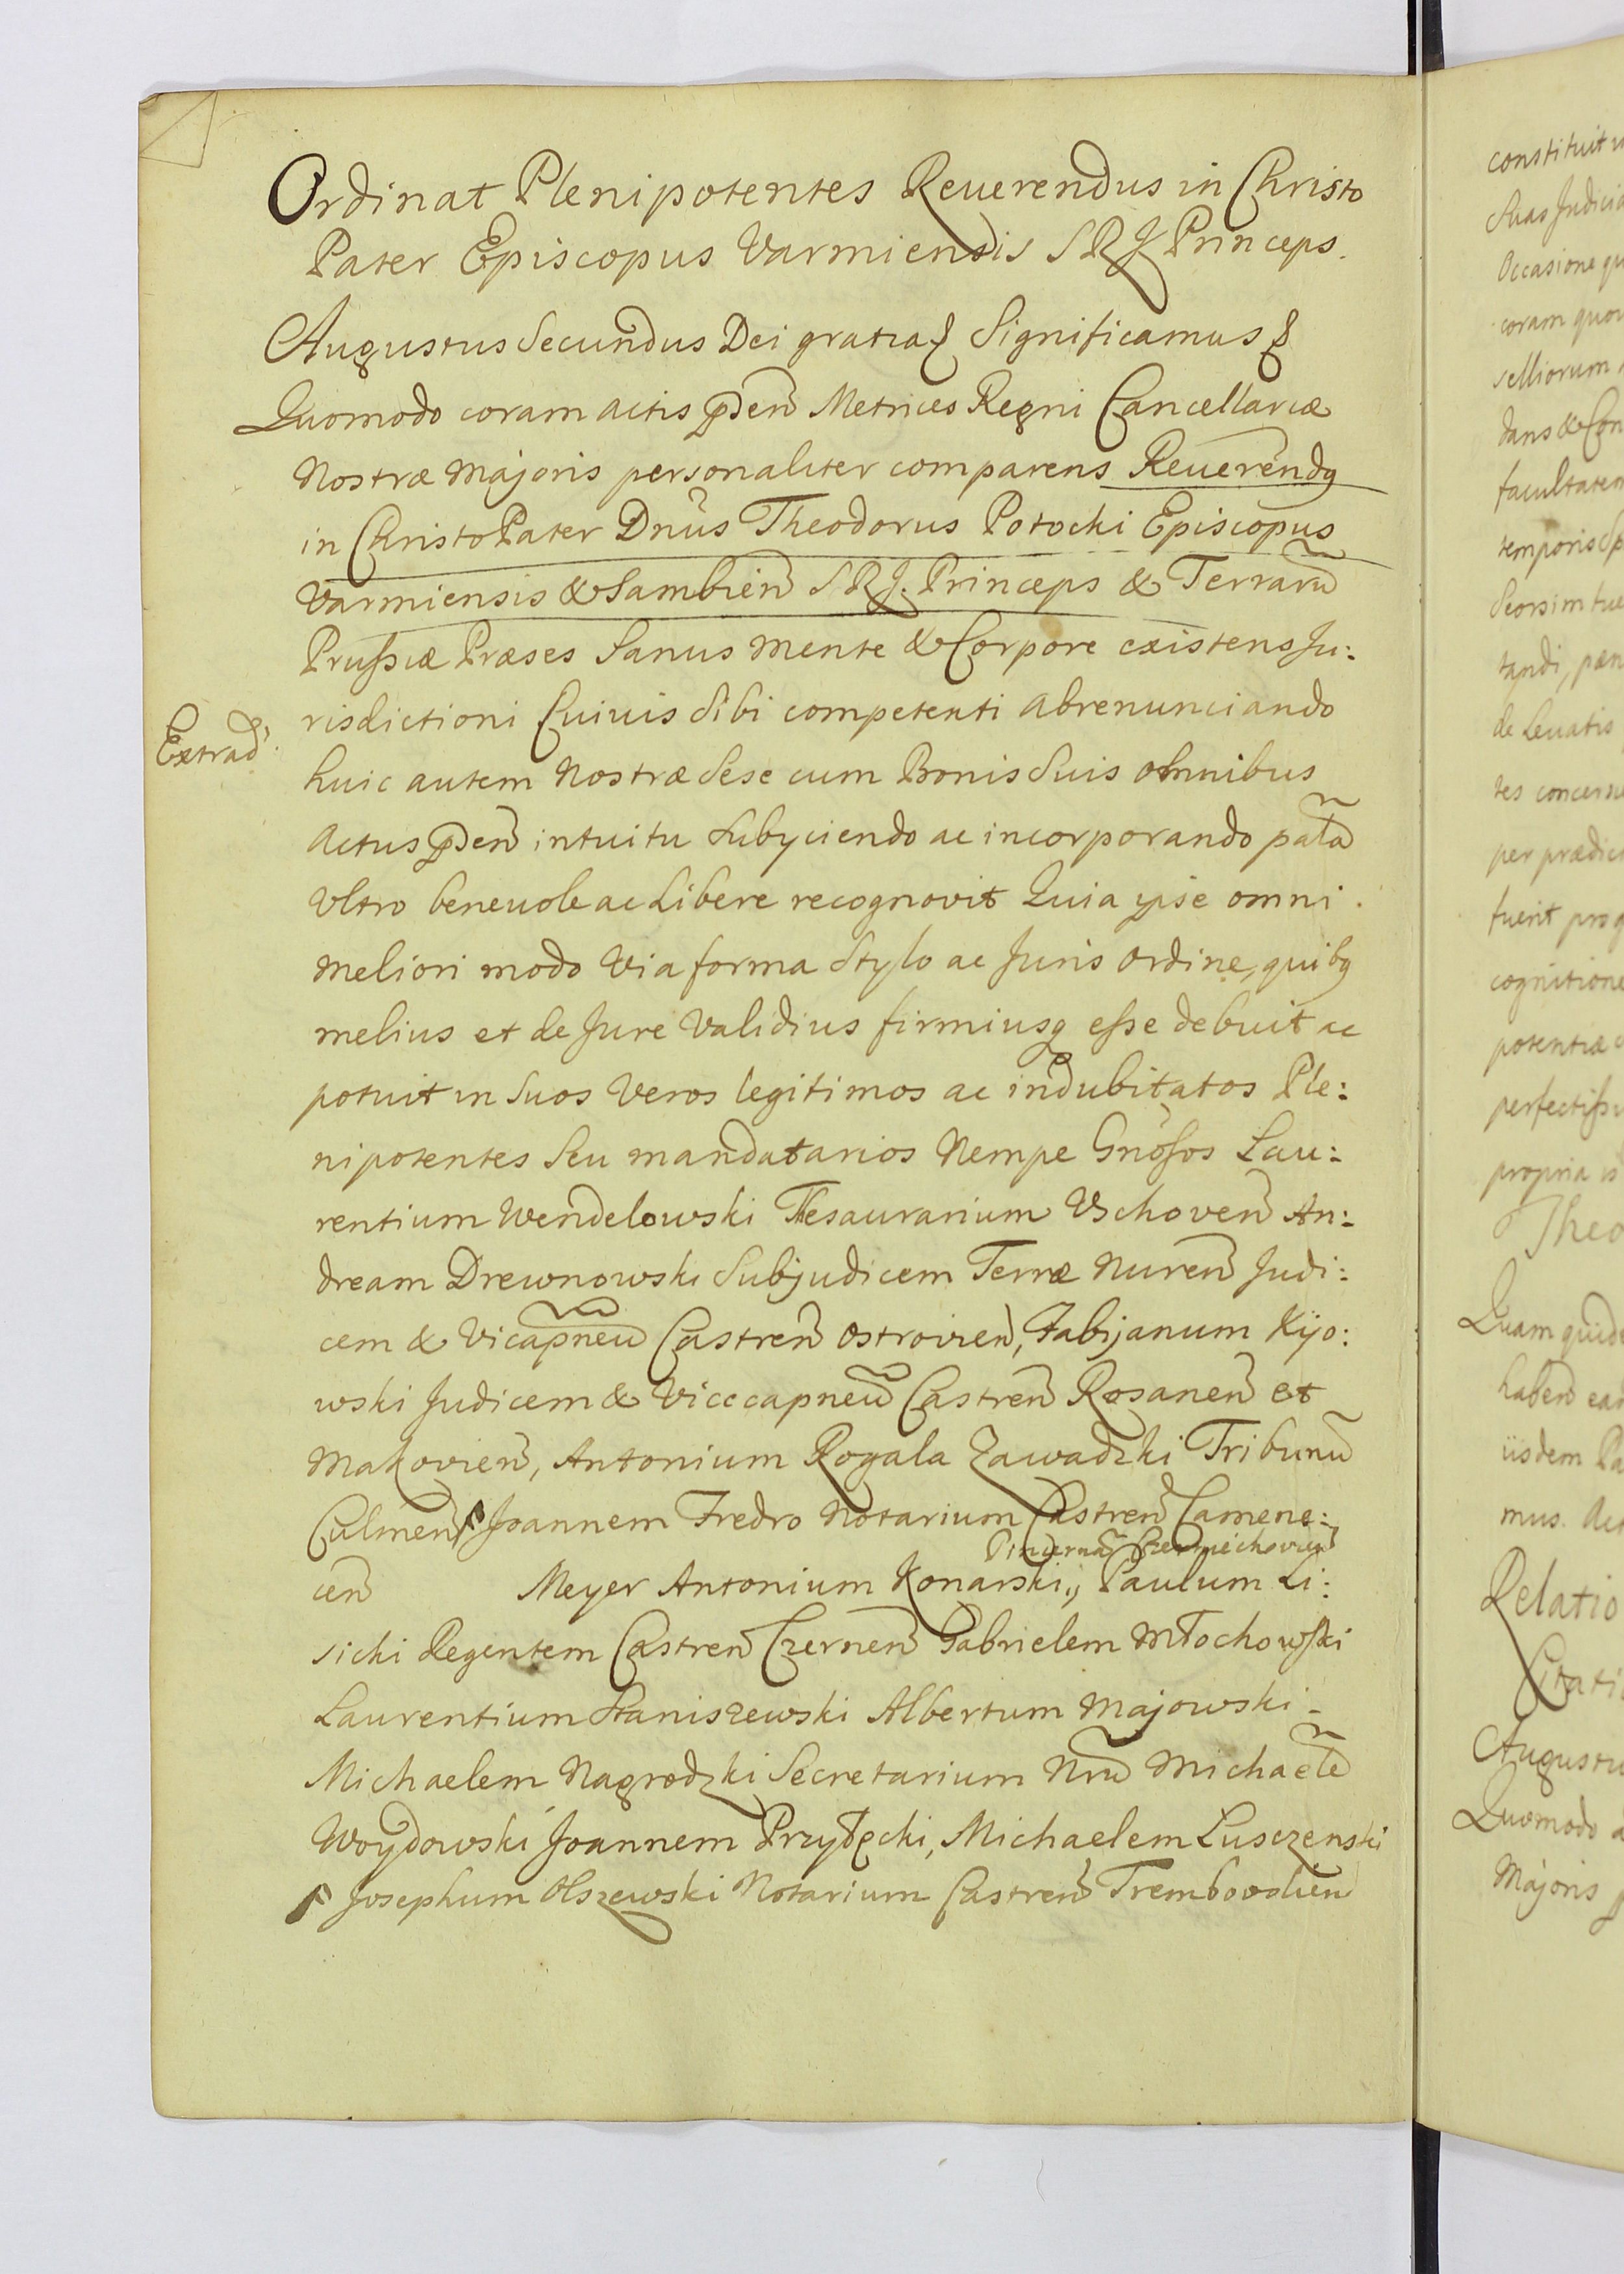 Ordinat Plenipotentes Reuerendus in Christo
Pater Episcopus Varmiensis S R J Princeps.
Augustus Secundus Dei gratia Significamus
Quomodo coram actis pñden̄ Metrices Regni Cancellariæ
Nostræ Majoris personaliter comparens Reuerendq
in Christo Pater Dnus Theodorus Potocki Episcopus
Varmiensis & Sambien̄ S R J. Princeps & Terrarū
Prussiæ Præses Sanus mente & Corpore existens Ju:
Extrad:
risdictioni Cuiuis Sibi competenti abrenunciando
huic autem Nostræ Sese cum Bonis Suis omnibus
actus pñden̄ intuitu Subyciendo ac incorporando palā
Vltro beneuole ac Libere recognovit Quia ipse omni
meliori modo Via forma Stylo ac Juris ordine, quibq
melius et de Jure Validius firmiusq esse debuit ac
potuit in Suos Veros legitimos ac indubitatos Ple:
nipotentes Seu mandatarios Nempe Gnosos Lau:
rentium Wendelowski Thesaurarium Vschoven̄ An:
dream Drewnowski Subjudicem Terræ Nuren̄ Judi:
cem & Vicapneū Castren̄ Ostrovien̄, Fabijanum Kijo:
wski Judicem & Vicecapneū Castren̄ Rosanen̄ et
Makovien̄, Antonium Rogala Zawadzki Tribunū
Culmen̄ Joannem Fredro Notarium Castren̄ Camene:
Pincernā Czerniechovien̄
cen̄ Meyer Antonium Konarski, Paulum Li:
sicki Regentem Castren̄ Czernen̄ Gabrielem Młochowski
Laurentium Staniszewski Albertum Majowski
Michaelem Nagrodzki Secretarium Nrū Michaelē
Woydowski Joannem Przyłęcki, Michaelem Lusczenski
Josephum Olszewski Notarium Castren̄ Trembovolien̄
constituit
Suas Judicia
Occasione
coram
selliorum
dans & Con
facultatem
temporis
Seorsim
tandi,
de Leuatis
tes
per
fuerit
cognitione
potentiæ
propria
Theo
Quam
haben̄
iisdem
mus.
Relatio
Augustu
Quomodo
Majoris